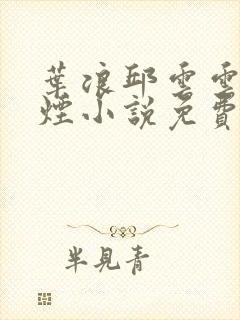 葉浪邱雲雲
煙小說免費
半見青